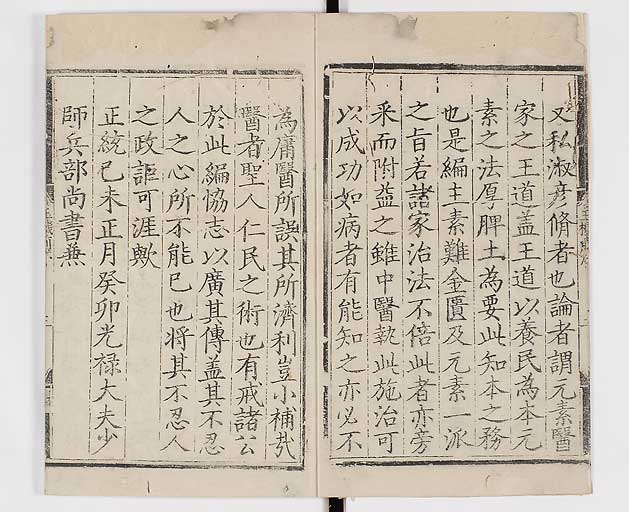 又私淑彦脩者也論者謂元素醫
家之王道盖王道以養民為本元
素之法厚脾土為要此知本之務
也是編主素難金匱及元素一派
之旨若諸家治法不倍此者亦旁
采而附益之雖中醫執此施治可
以成功如病者有能知之亦必不
為庸醫所誤其所濟利豈小補㢤
醫者聖人仁民之術也有戒諸公
於此編協志以廣其傳盖其不忍
人之心所不能已也将其不忍人
之政詎可涯歟
正統己未正月癸卯光禄大夫少
師兵部尚書兼